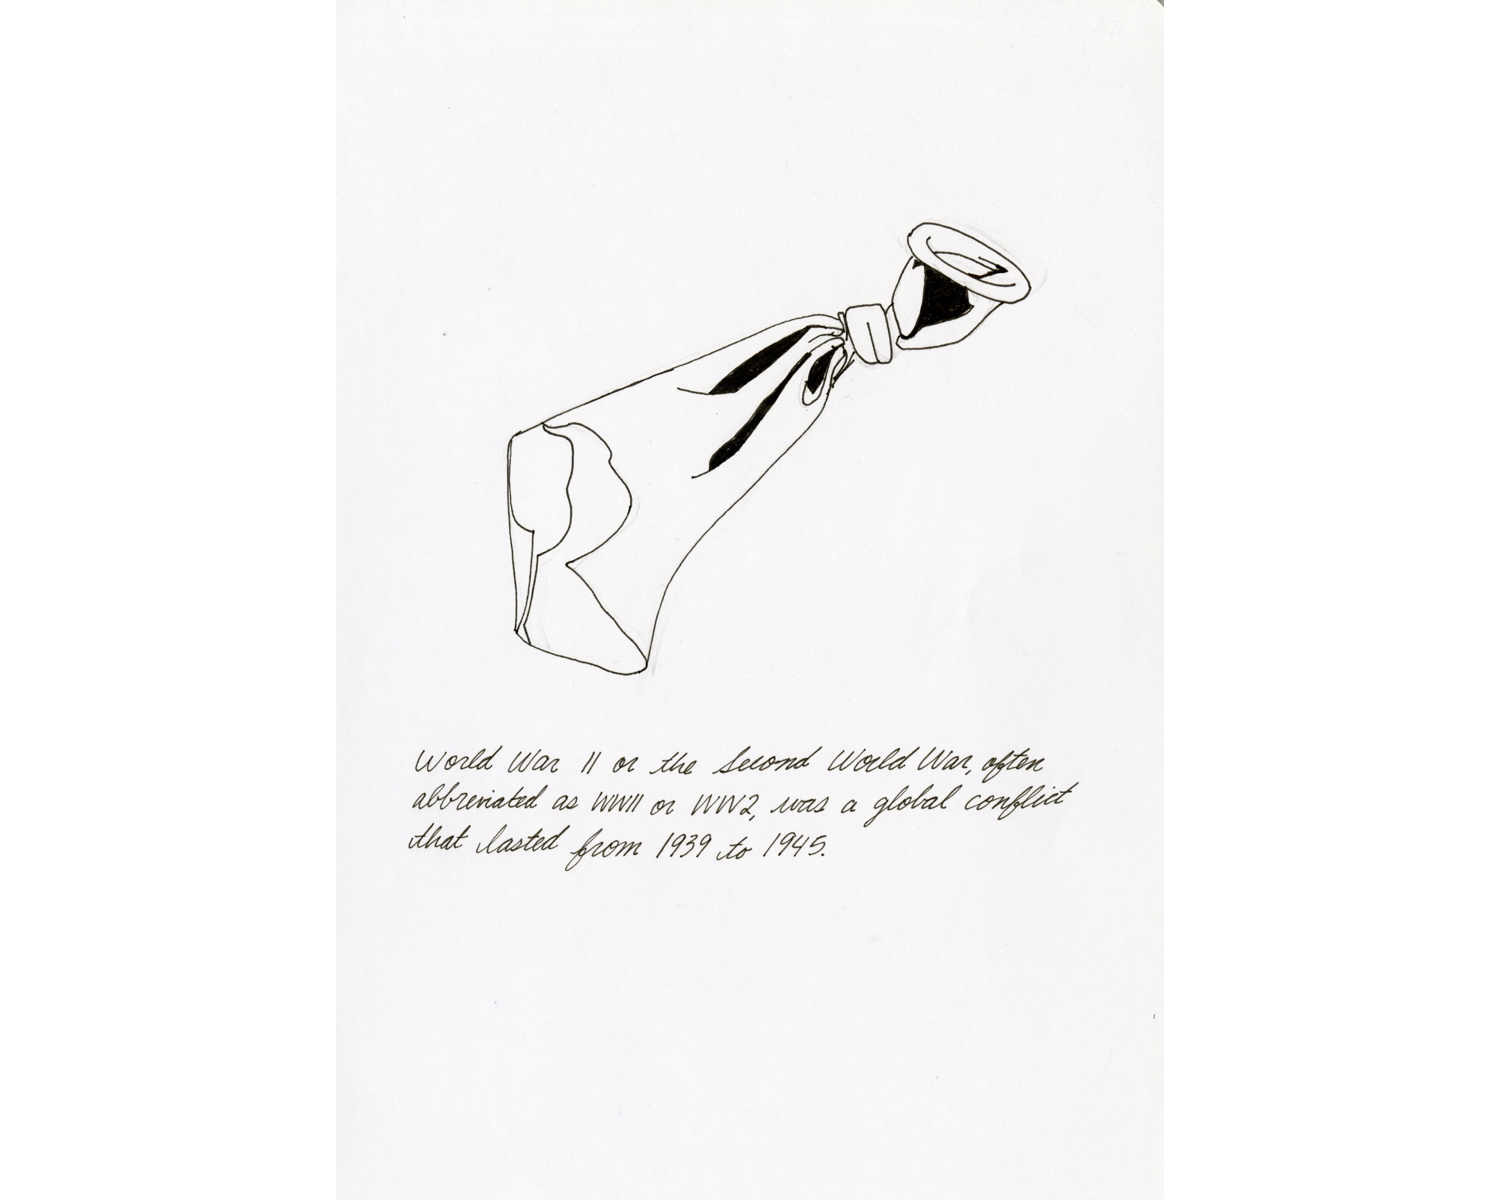 World War II or the Second World War, often
abbreviated as WWII or WW2, was a global conflict
that lasted from 1939 to 1945.